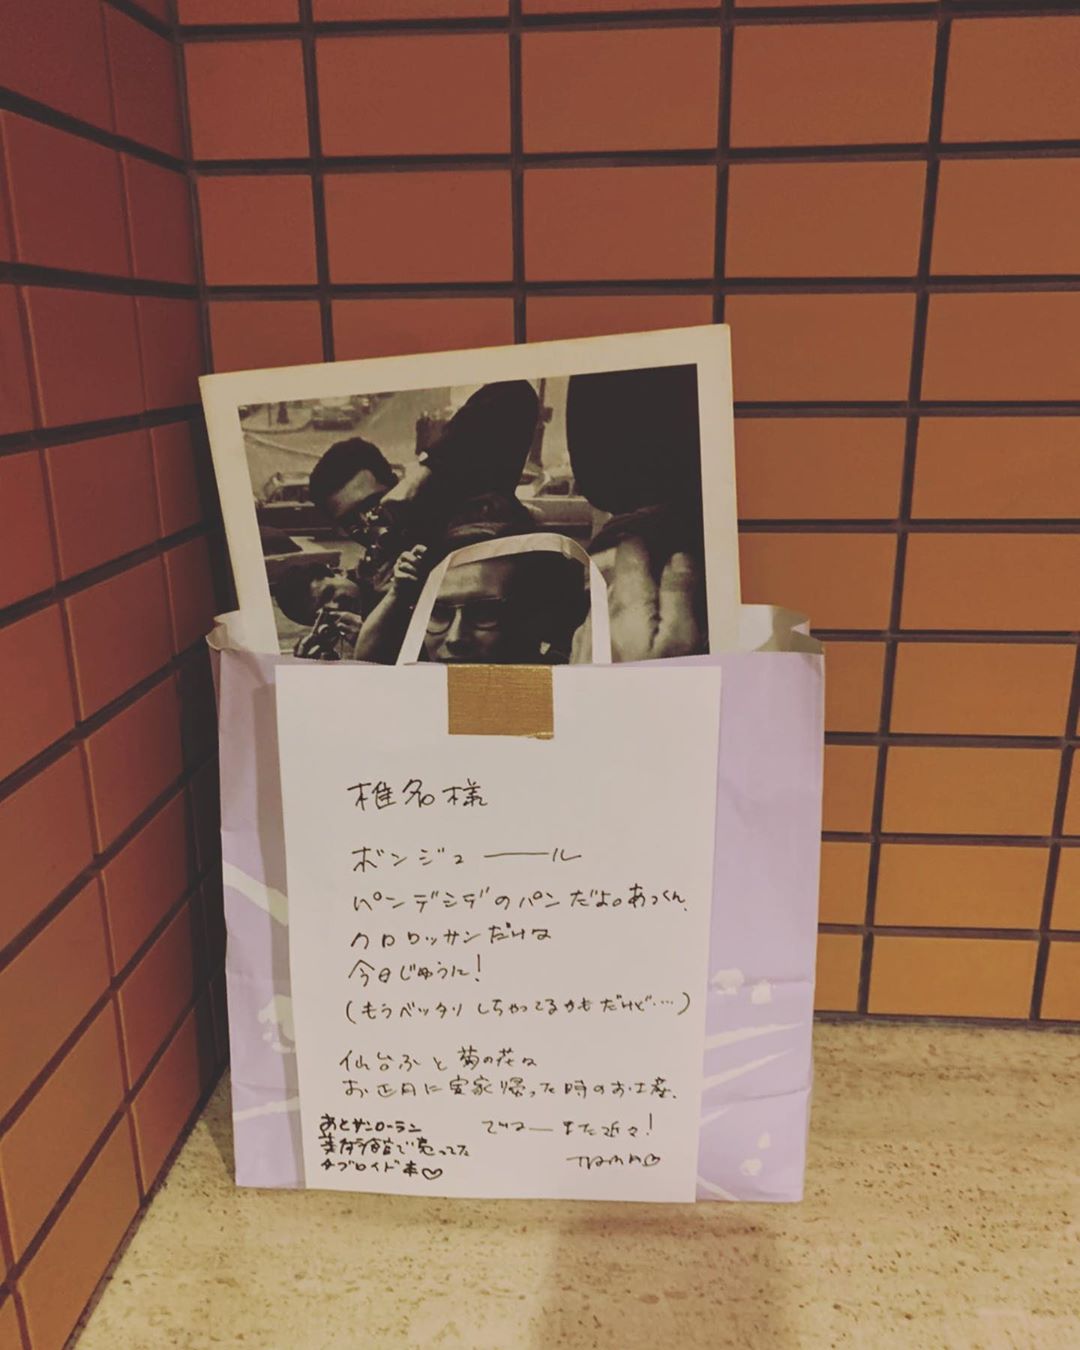 椎名様
ボンジュール
パンデシデのパンだよ。あっくん、
クロワッサンだけは
今日じゅうに!
(もうベッタリしちゃってるかもだけど‥‥)
仙台ふと菊の花は
お正月に実家帰った時のお土産、
あとサンローラン
美術館で売ってた
タブロイド本♡
ではーまた近々!